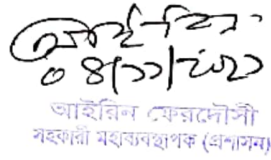 ০৪/১১/২০২১
আইরিন ফেরদৌসী
সহকারী মহাব্যবস্থাপক (প্রশাসন)